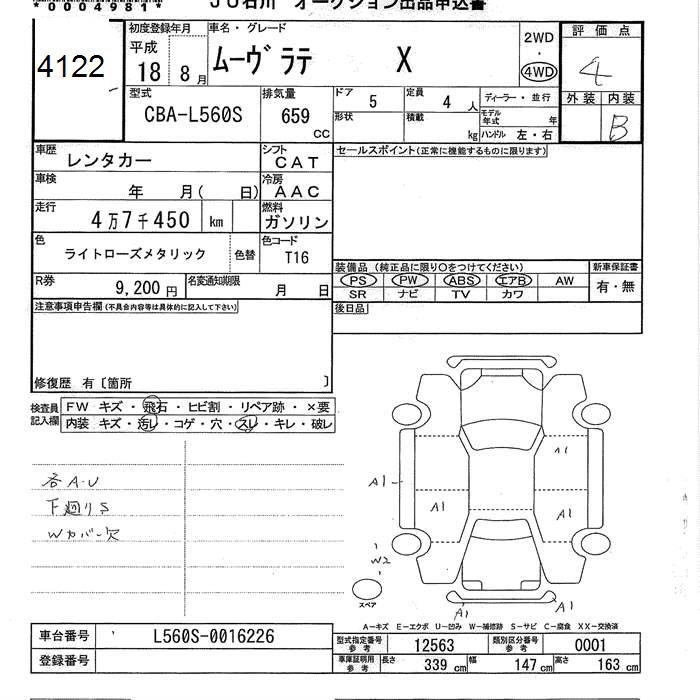 *0004981*
JU石川 オークション出品申込書
4122
初度登録年月
平成
18 8月
車名・グレード
ムーヴラテ X
2WD
・
4WD
評価点
4
外装 内装
B
型式
CBA-L560S
排気量
659
CC
ドア 5
定員 4 人
ディーラー・並行
形状
積載 kg
モデル年式 年
ハンドル 左・右
車歴 レンタカー
シフト CAT
セールスポイント(正常に機能するものに限ります)
車検 年 月( 日)
冷房 AAC
走行 4万7千450 km
燃料 ガソリン
色 ライトローズメタリック 色替
色コード T16
装備品 (純正品に限り○をつけてください)
新車保証書
PS PW ABS エアB AW
有・無
SR ナビ TV カワ
R券 9,200円
名変通知期限 月 日
注意事項申告欄(不具合内容等は具体的に記入して下さい)
後日品
修復歴 有〔箇所 〕
検査員記入欄
FW キズ・飛石・ヒビ割・リペア跡・×要
内装 キズ・汚レ・コゲ・穴・スレ・キレ・破レ
各A-U
下廻りS
Wカバー欠
A1
A1
A1
A1
W2
スペア
A1
A1
A-キズ E-エクボ U-凹み W-補修跡 S-サビ C-腐食 XX-交換済
車台番号 L560S-0016226
登録番号
型式指定番号 参考 12563
類別区分番号 参考 0001
車庫証明用 参考 長さ 339 cm 幅 147 cm 高さ 163 cm